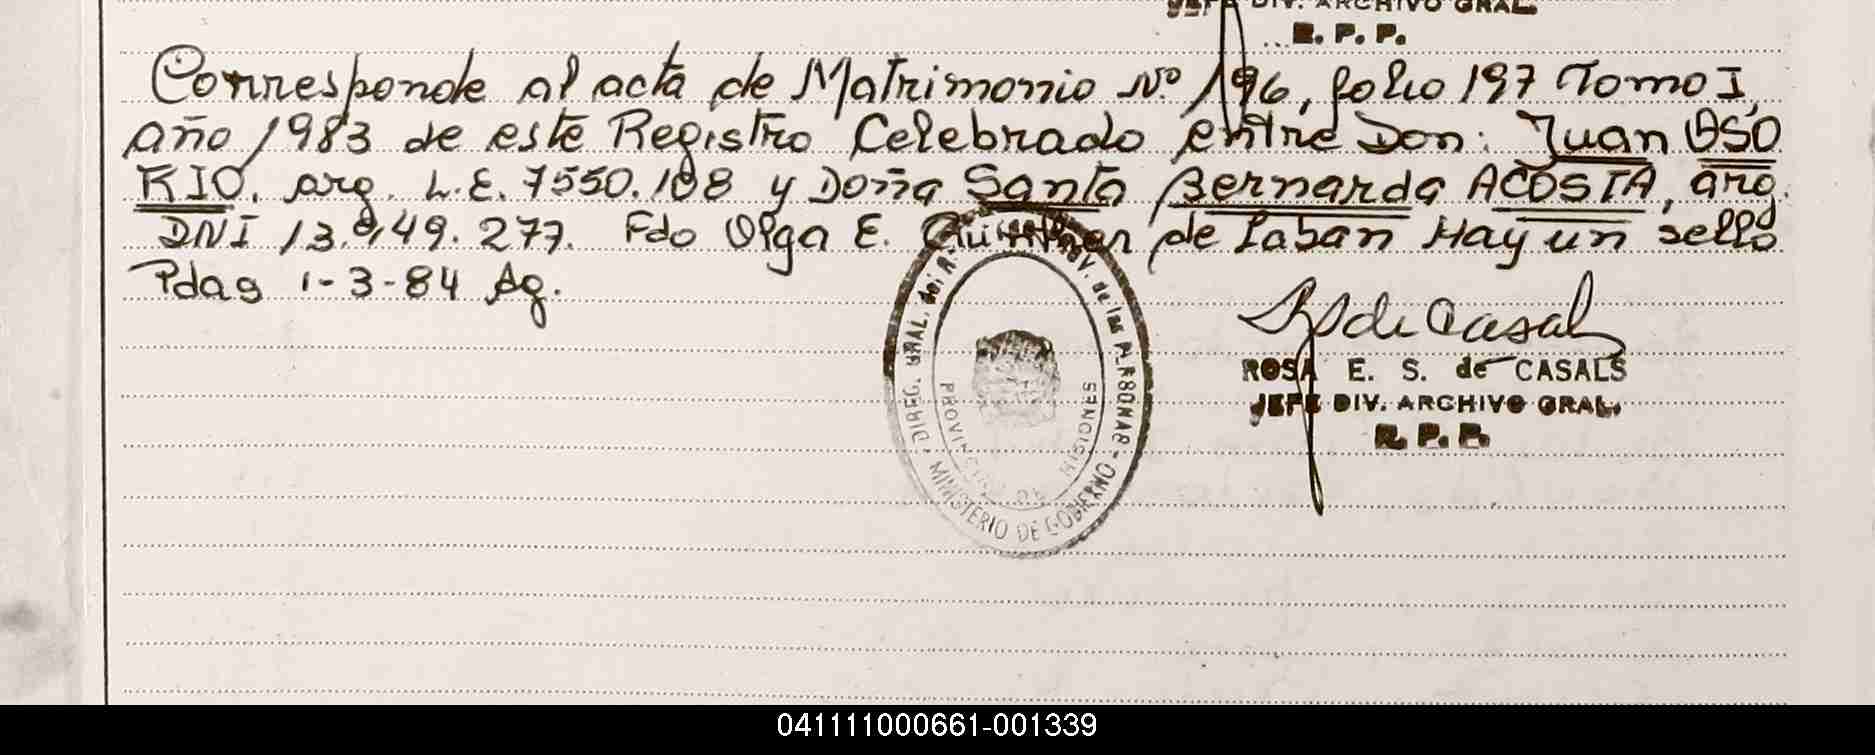 JEFE DIV. ARCHIVO GRAL.
R. P. P.
Corresponde al acta de Matrimonio Nº 196, folio 197 Tomo I,
año 1983 de este Registro Celebrado entre Don: Juan OSO
RIO. arg. L.E. 7550.188 y Doña Santa Bernarda ACOSTA, arg.
DNI 13. 149. 277. Fdo Olga E. de Laban Hay un sello
Pdas 1-3-84 Ag.
DIREC. GRAL. del R. de las PERSONAS - MINISTERIO DE GOBIERNO
PROVINCIA DE MISIONES
de Casals
ROSA E. S. de CASALS
JEFE DIV. ARCHIVO GRAL.
R. P. P.
041111000661-001339